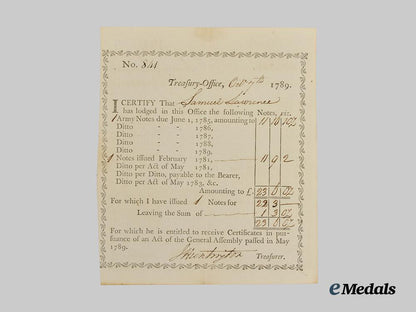 No. 841
Treasury-Office, Oct 7th 1789.
I CERTIFY That Samuel Lawrence
has lodged in this Office the following Notes, viz.
1 Army Notes due June 1, 1785, amounting to 11
Ditto - - 1786,
Ditto - - 1787,
Ditto - - 1788,
Ditto - - 1789,
1 Notes issued February 1781, 11 9 2
Ditto per Act of May 1781,
Ditto per Ditto, payable to the Bearer,
Ditto per Act of May 1783, &c.
Amounting to £. 23 0
For which I have issued 1 Notes for 22 3
Leaving the Sum of 1 3 0
23 0
For which he is entitled to receive Certificates in pur-
suance of an Act of the General Assembly passed in May
1789.
J Huntington Treasurer.
eMedals